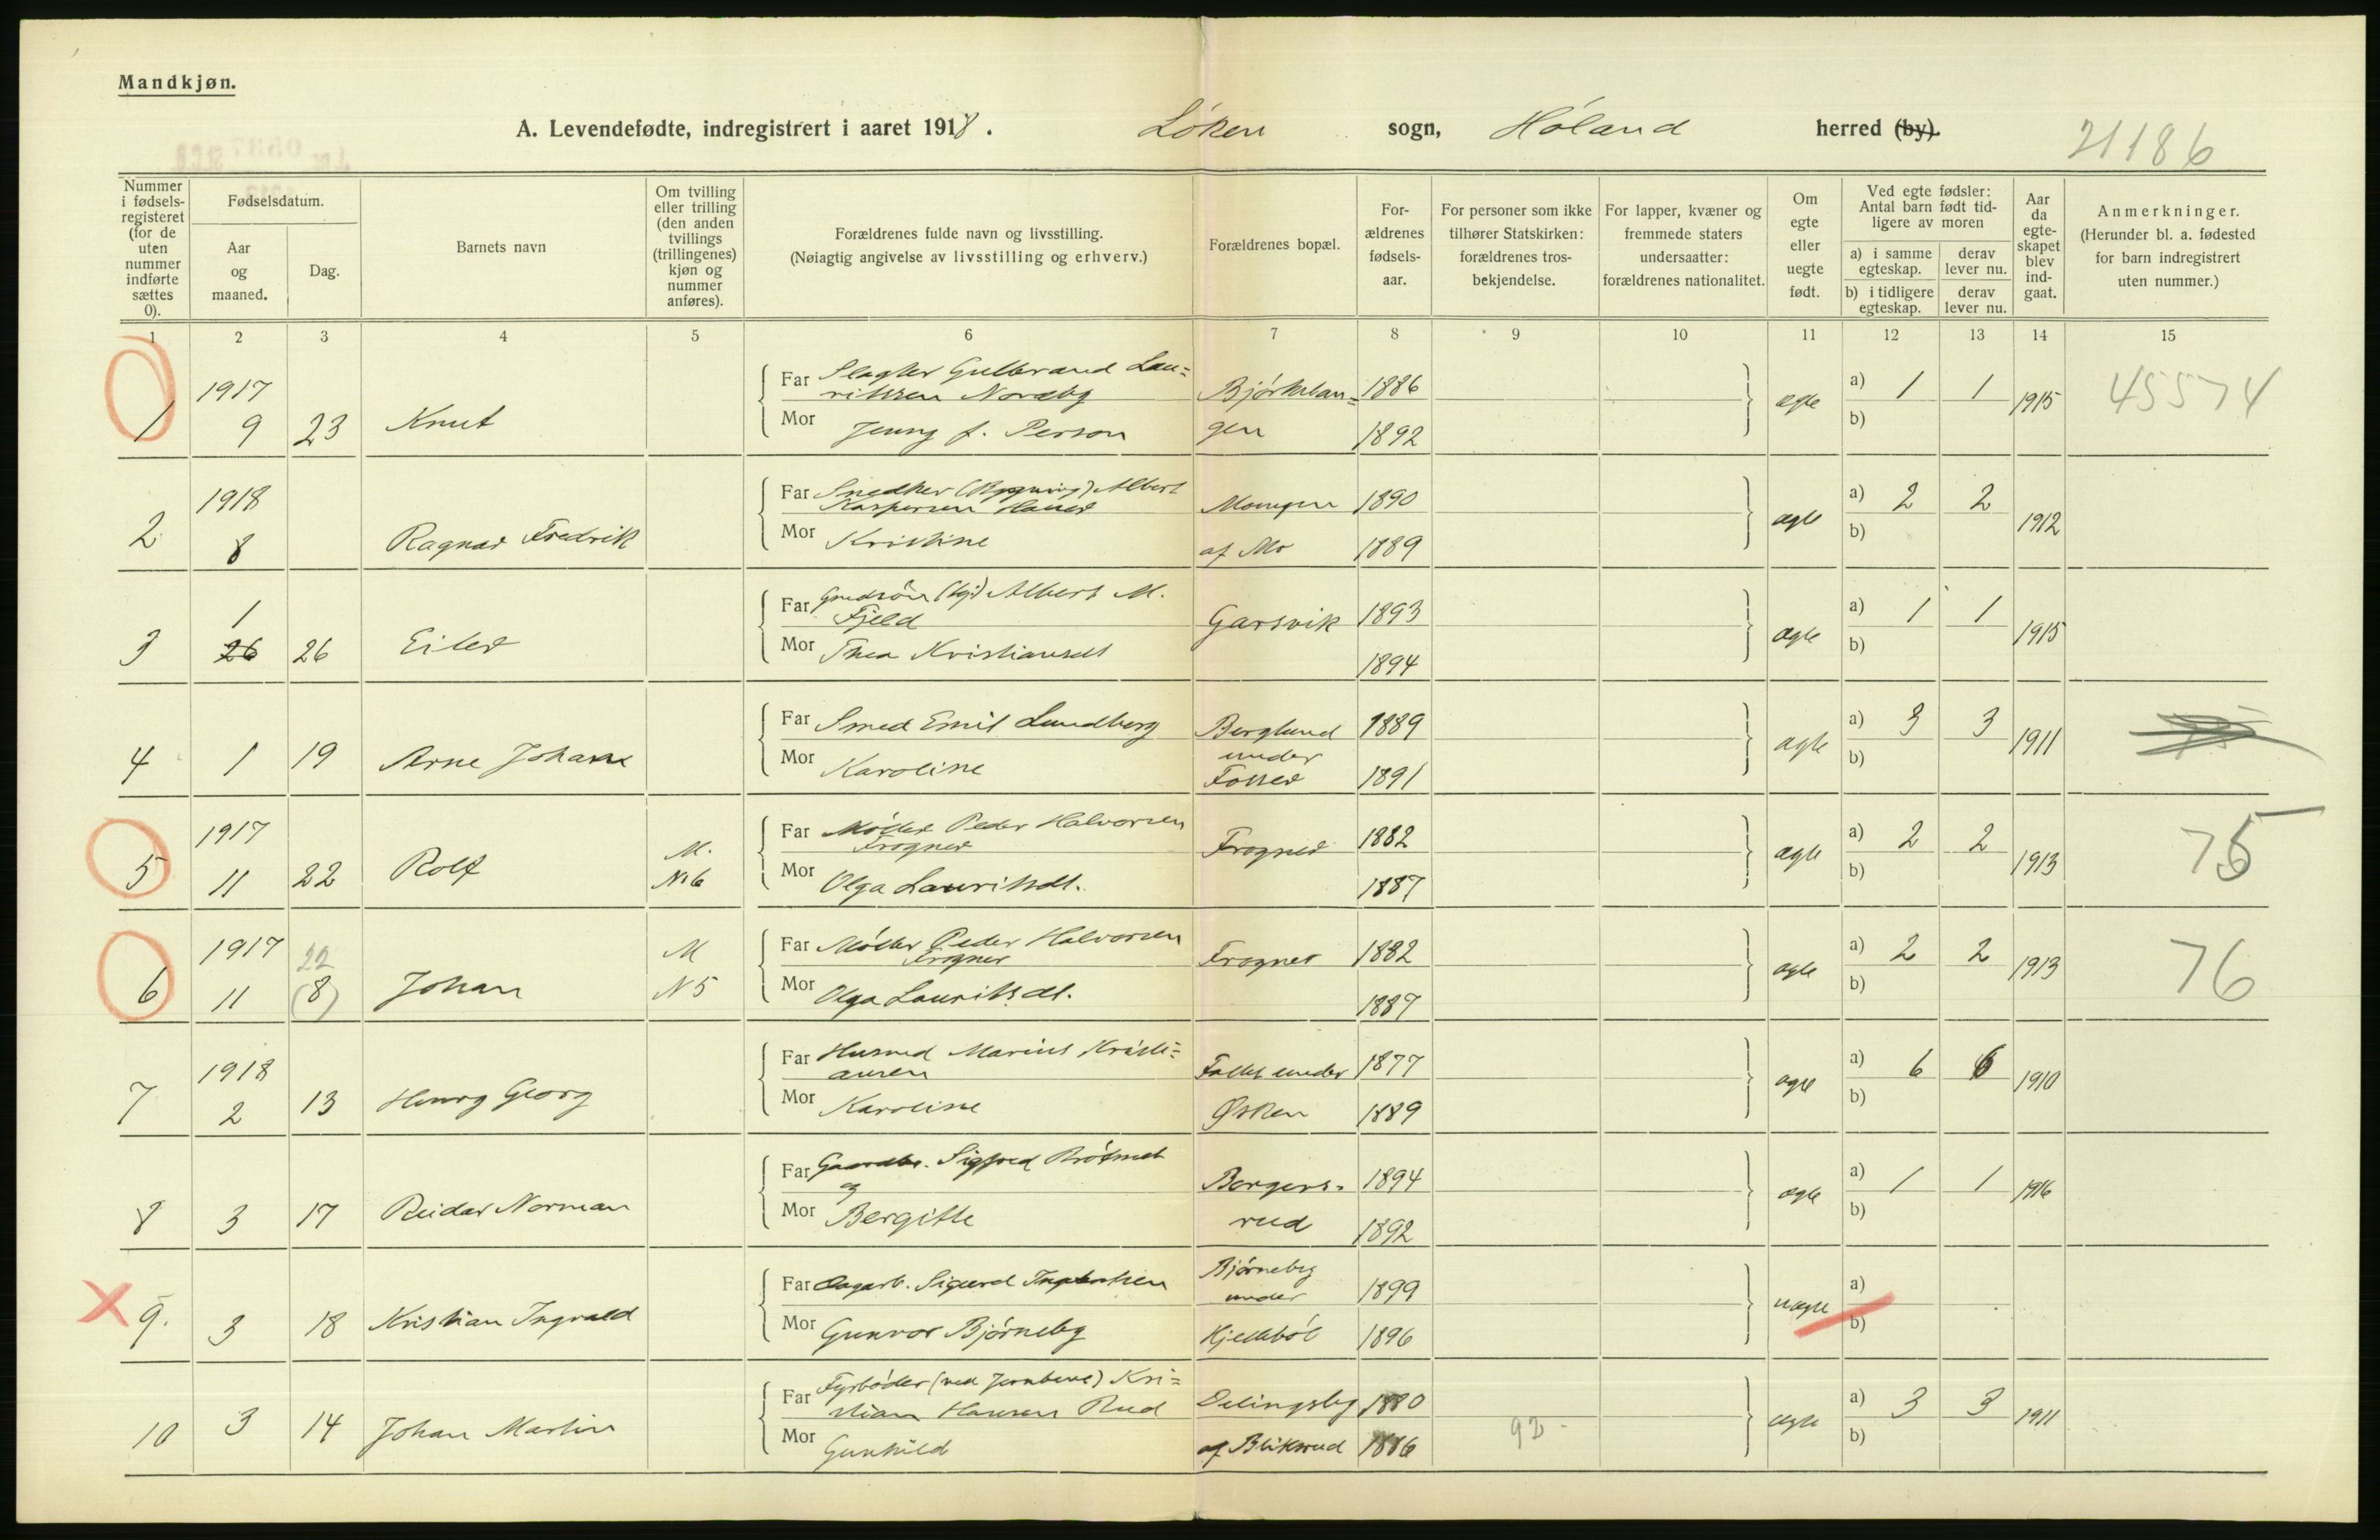 Mandkjøn.
A. Levendefødte, indregistrert i aaret 1918. Løken sogn, Høland herred (by).
21186
Nummer i fødsels-registeret (for de uten nummer indførte sættes 0).
Fødselsdatum.
Aar og maaned.
Dag.
Barnets navn
Om tvilling eller trilling (den anden tvillings (trillingenes) kjøn og nummer anføres).
Forældrenes fulde navn og livsstilling.
(Nøiagtig angivelse av livsstilling og erhverv.)
Forældrenes bopæl.
For-ældrenes fødsels-aar.
For personer som ikke tilhører Statskirken: forældrenes tros-bekjendelse.
For lapper, kvæner og fremmede staters undersaatter: forældrenes nationalitet.
Om egte eller uegte født.
Ved egte fødsler: Antal barn født tid-ligere av moren
a) i samme egteskap. derav lever nu.
b) i tidligere egteskap. derav lever nu.
Aar da egte-skapet blev ind-gaat.
Anmerkninger.
(Herunder bl. a. fødested for barn indregistrert uten nummer.)
1 2 3 4 5 6 7 8 9 10 11 12 13 14 15
Far Slagter Gulbrand Lau=
1917 ritssen Nordby Bjørkelan= 1886 a) 1 1
1 9 23 Knut Mor Jenny f. Person gen 1892 egte b) 1915 45574
1918 Far Snedker (Bygning) Albert
Kaspersen Mangen 1890 a) 2 2
2 8 Ragnar Fredrik Mor Kristine af Mo 1889 egte b) 1912
1 Far Albert M.
Fjeld Garsvik 1893 a) 1 1
3 26 26 Eiler Mor Thea Kristiansdt 1894 egte b) 1915
Far Smed Emil Lundberg Berglund 1889 a) 3 3
4 1 19 Arne Johan Mor Karoline under Fosser 1891 egte b) 1911
1917 M. Far Møller Peder Halvorsen
Frogner Frogner 1882 a) 2 2
5 11 22 Rolf N 6 Mor Olga Lauritsdt. 1887 egte b) 1913 75
1917 22 M Far Møller Peder Halvorsen
Frogner Frogner 1882 a) 2 2
6 11 (8) Johan N 5 Mor Olga Lauritsdt. 1887 egte b) 1913 76
1918 Far Husmd Marius Kristi=
ansen under 1877 a) 6 6
7 2 13 Henry Georg Mor Karoline Ørken 1889 egte b) 1910
Far Gaardbr. Sigfred
og Borgers= 1894 a) 1 1
8 3 17 Reidar Norman Mor Bergitte rud 1892 egte b) 1916
Far Dagarb. Sigurd Bjørneby under 1899 a)
9. 3 18 Kristian Ingvald Mor Gunvor Bjørneby Kjelleböl 1896 uegte b)
Far Fyrbøder (ved Jernbane) Kri=
stian Hansen Rud 1880 a) 3 3
10 3 14 Johan Martin Mor Gunhild af Bliksrud 1886 9D - egte b) 1911